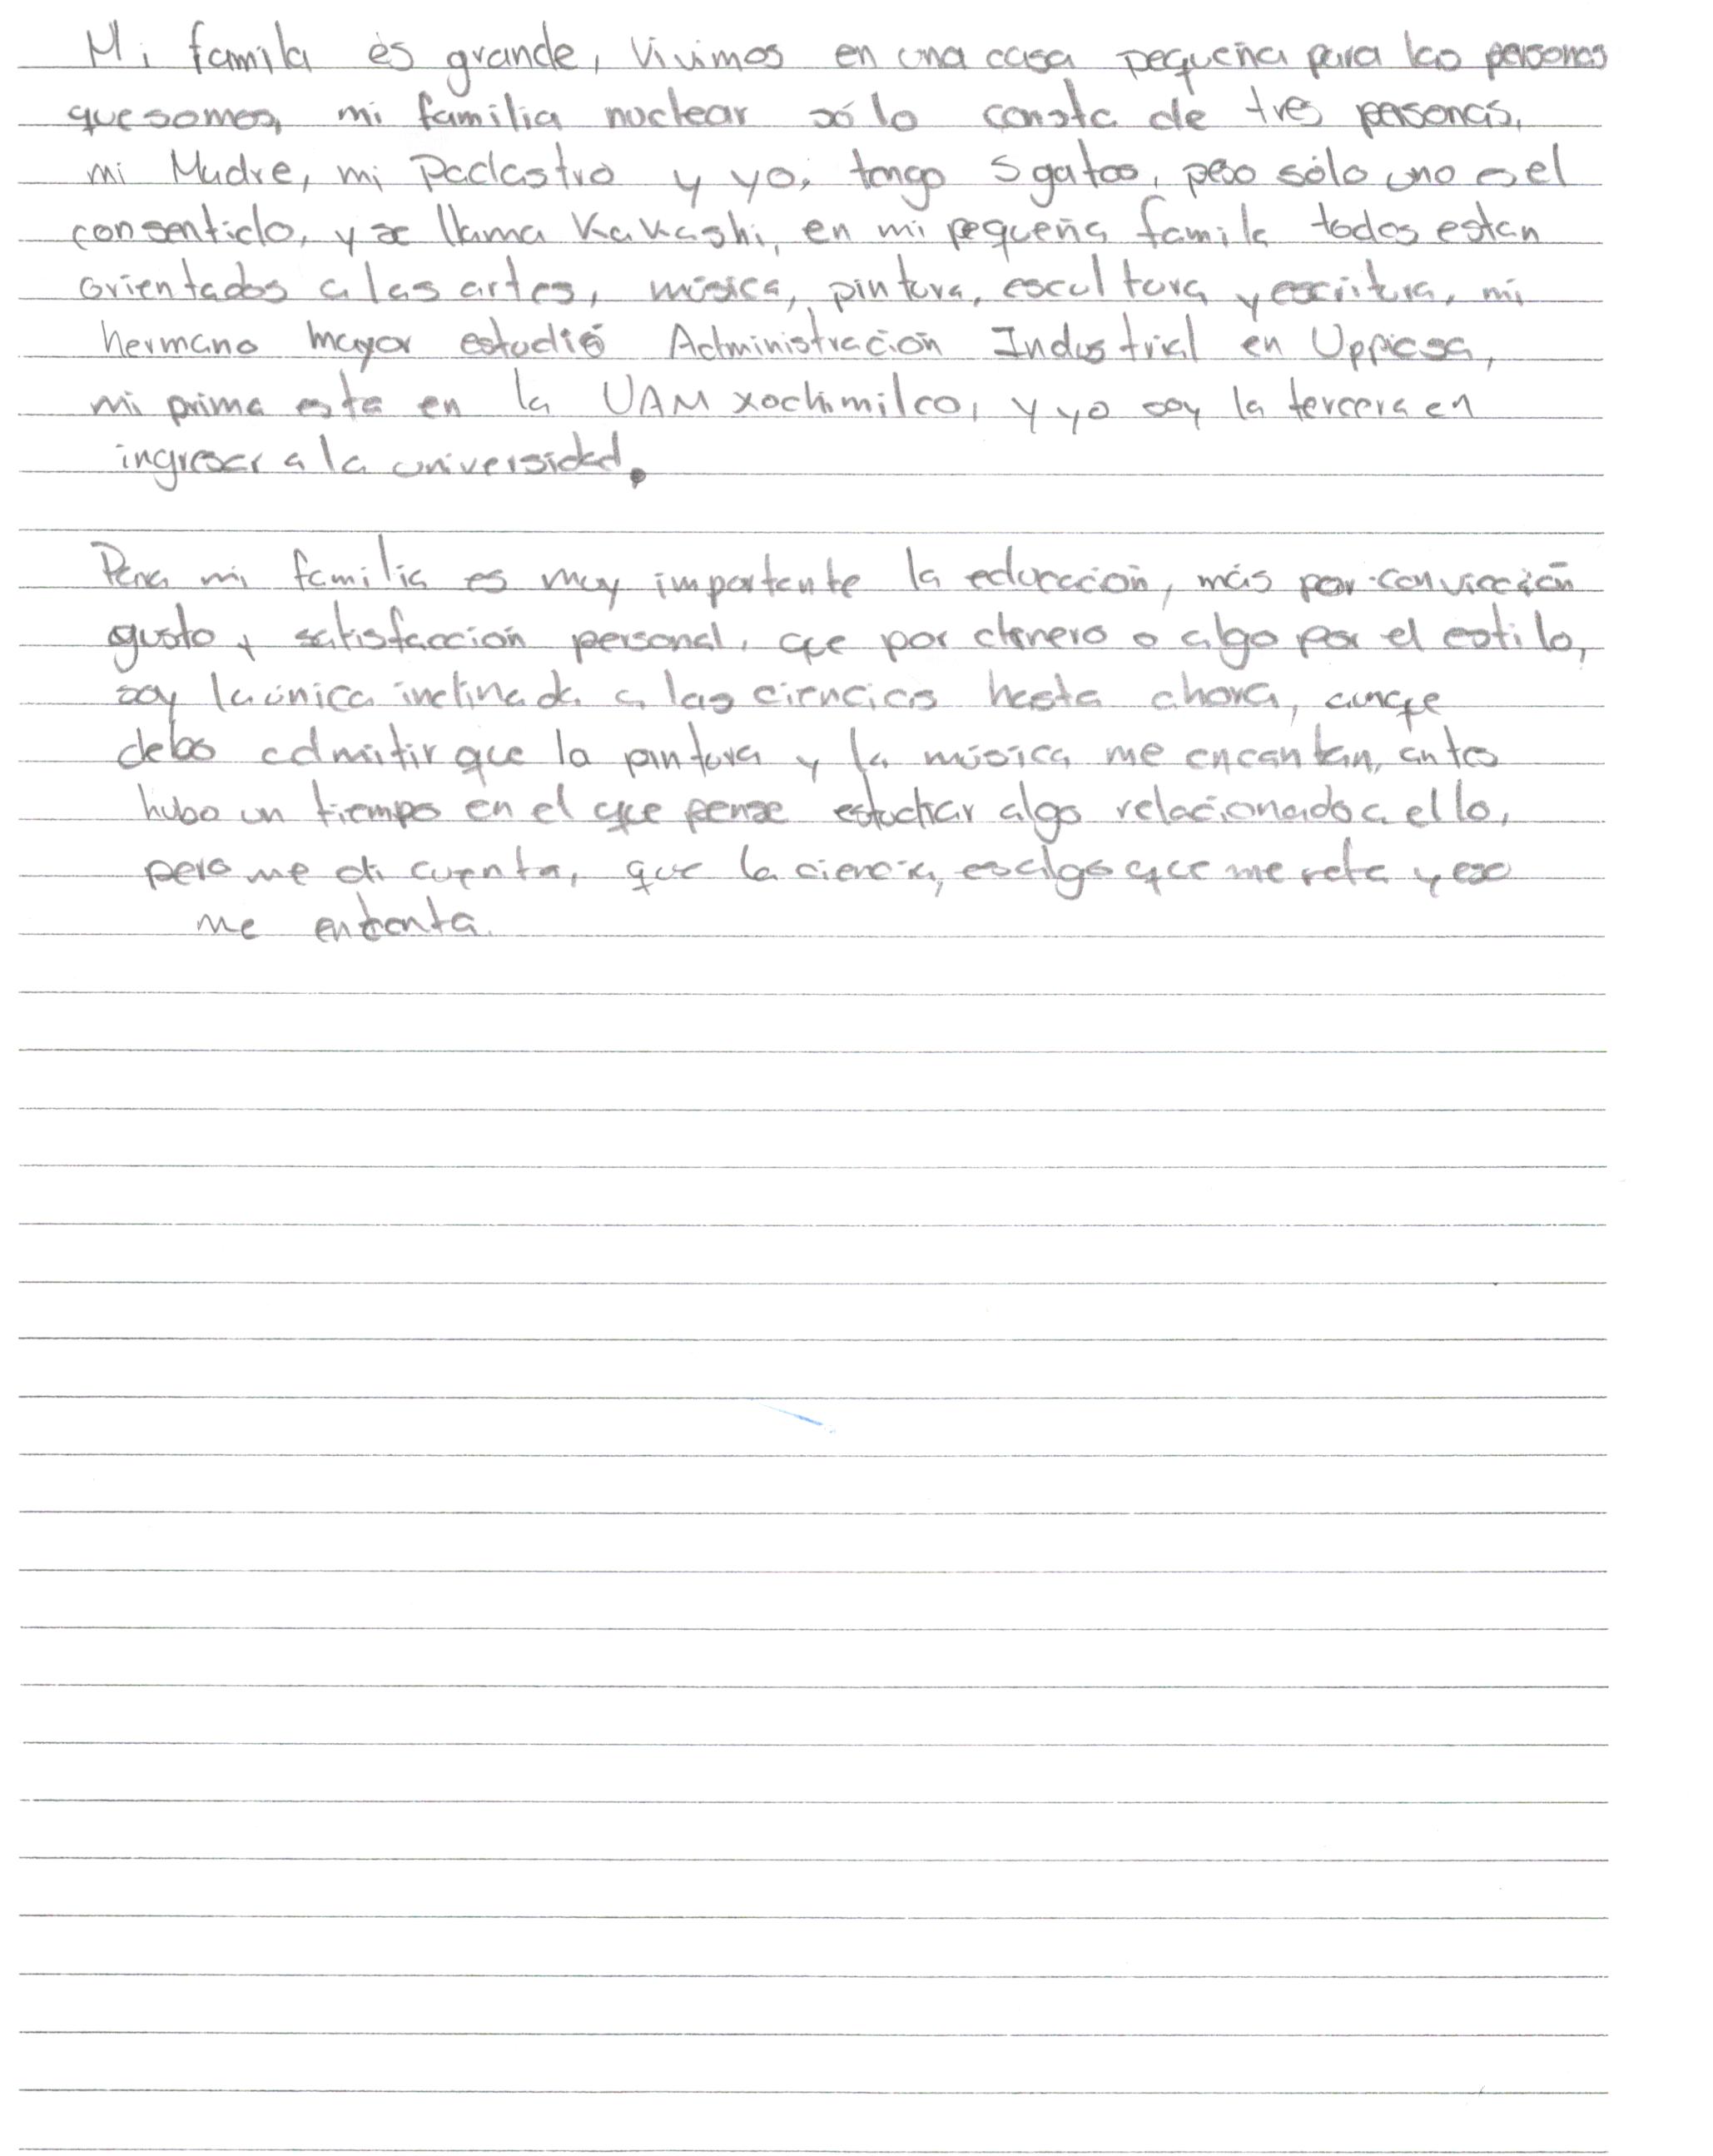 Mi famila es grande, vivimos en una casa pequeña para las personas
que somos, mi familia nuclear sólo consta de tres personas,
mi Madre, mi Padastro y yo, tengo 5 gatos, pero sólo uno es el
consentido, y se llama Kakashi, en mi pequeña famila todos estan
orientados a las artes, música, pintura, escultura y escritura, mi
hermano mayor estudió Administración Industrial en Uppicsa,
mi prima esta en la UAM xochimilco, y yo soy la tercera en
ingresar a la universidad.
Para mi familia es muy importante la educación, más por convicción
gusto y satisfacción personal, que por dinero o algo por el estilo,
soy la única inclinada a las ciencias hasta ahora, aunque
debo admitir que la pintura y la música me encantan, antes
hubo un tiempo en el que pense estudiar algo relacionado a ello,
pero me di cuenta, que la ciencia, es algo que me reta y eso
me encanta.